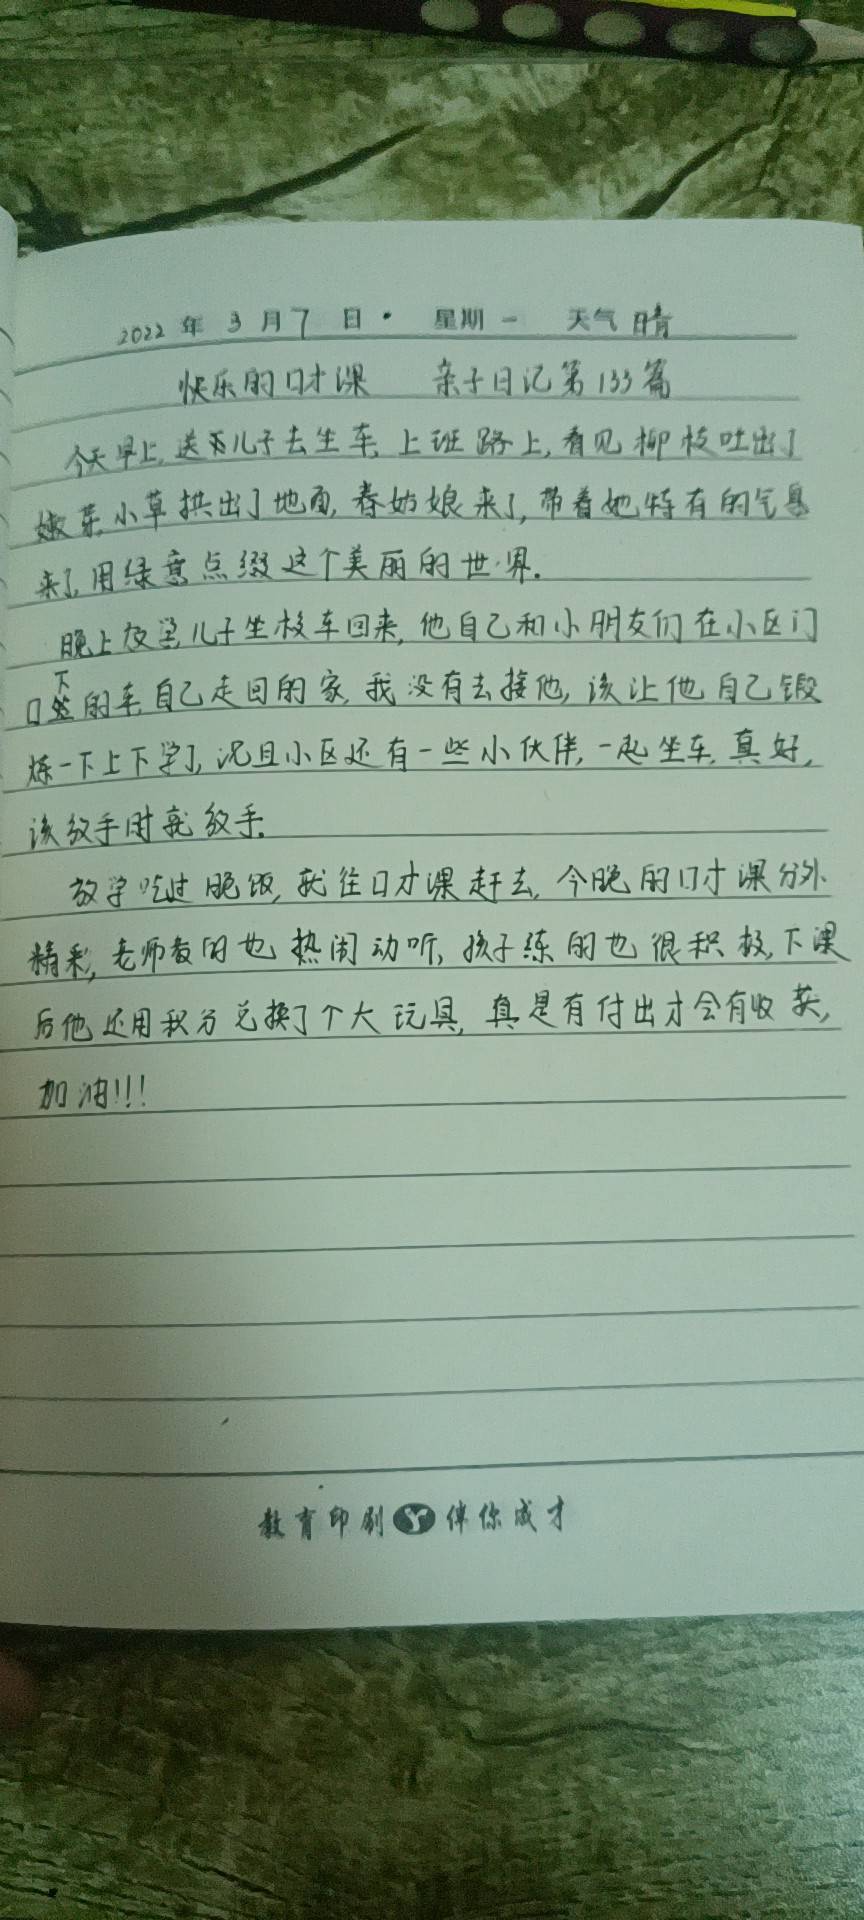 2022 年 3 月 7 日 · 星期 一 天气 晴
快乐的口才课 亲子日记第133篇
今天早上,送儿子去坐车,上班路上,看见柳枝吐出了
嫩芽,小草拱出了地面,春姑娘来了,带着她特有的气息
来了,用绿意点缀这个美丽的世界.
晚上放学,儿子坐校车回来,他自己和小朋友们在小区门
口下的车,自己走回的家,我没有去接他,该让他自己锻
炼一下上下学了,况且小区还有一些小伙伴,一起坐车,真好,
该放手时就放手.
放学吃过晚饭,就往口才课赶去,今晚的口才课分外
精彩,老师教的也热闹动听,孩子练的也很积极,下课
后他还用积分兑换了个大玩具,真是有付出才会有收获,
加油!!!
教育印刷 伴你成才